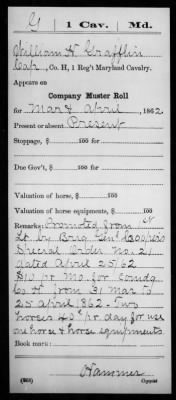 G | 1 Cav. | Md.
William H Grafflin
Cap, Co. H, 1 Reg't Maryland Cavalry.
Appears on
Company Muster Roll
for Mar & April, 1862
Present or absent Present
Stoppage, $ 100 for
Due Gov't, $ 100 for
Valuation of horse, $ 100
Valuation of horse equipments, $ 100
Remarks: Promoted from 1st
Lt by Brig Genl Cooper's
Special Order No. 21
dated April 25/62
$10 pr Mo. for Comdg
Co H from 31 Mar to
25 April 1862. Two
horses 40cts pr day for use
one horse & horse equipments
Book mark:
Hammer
(858) Copyist